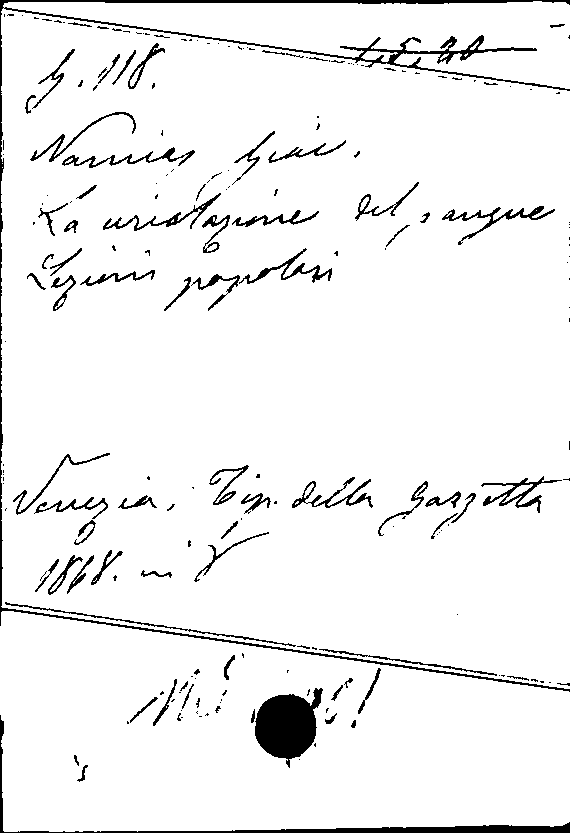 1.5.20
G. 118.
Namias Giac.
La circolazione del sangue
Lezioni popolari
Venezia, Tip. della Gazzetta
1868. in 8